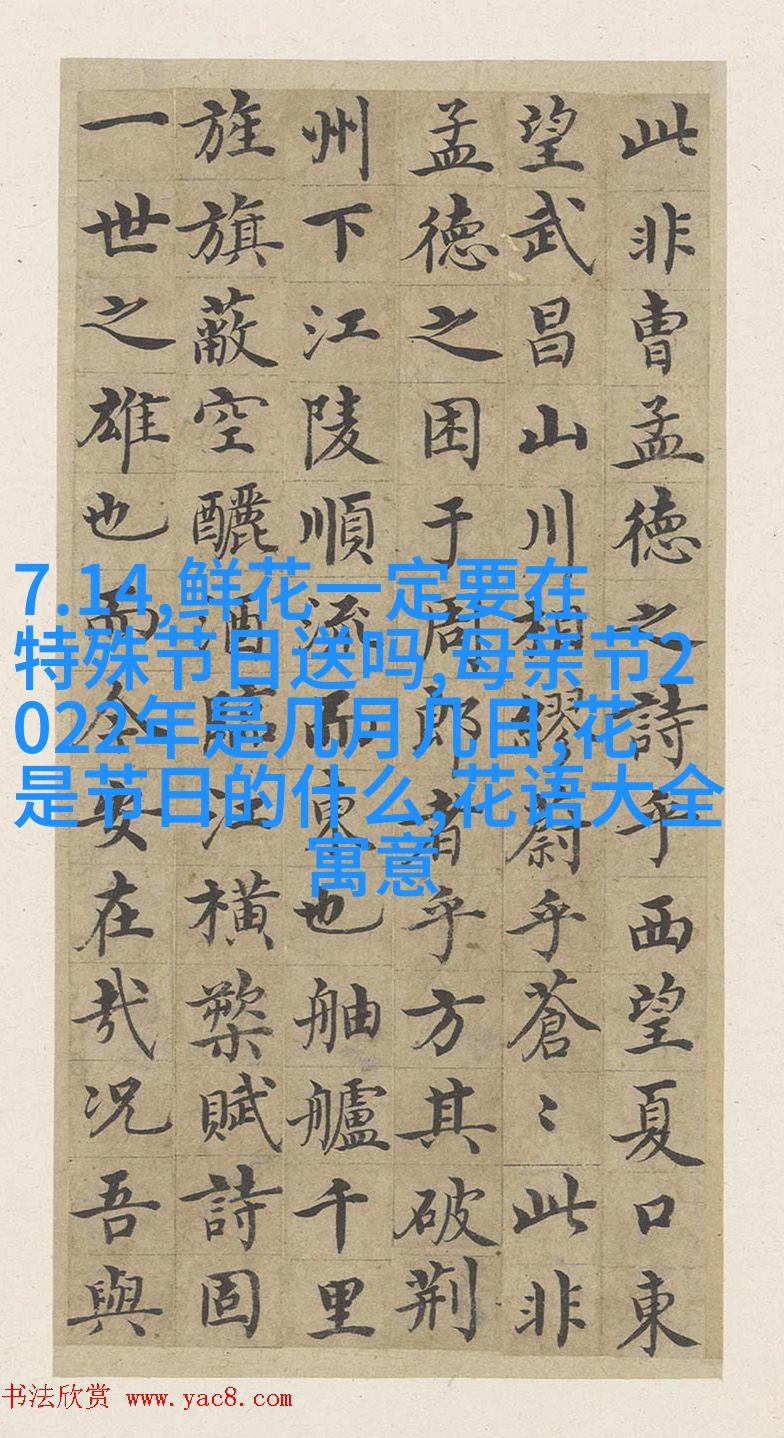 此非曹孟德之詩乎西望夏口東
望武昌山川相繆蔚乎蒼〻此非
孟德之困于周郎者乎方其破荆
州下江陵順流而東也舳艫千里
旌旗蔽空釃酒臨江橫槊賦詩固
一世之雄也而今安在哉况吾與
7.14,鲜花一定要在
特殊节日送吗,母亲节2
022年是几月几日,花
是节日的什么,花语大全
寓意
书法欣赏 www.yac8.com